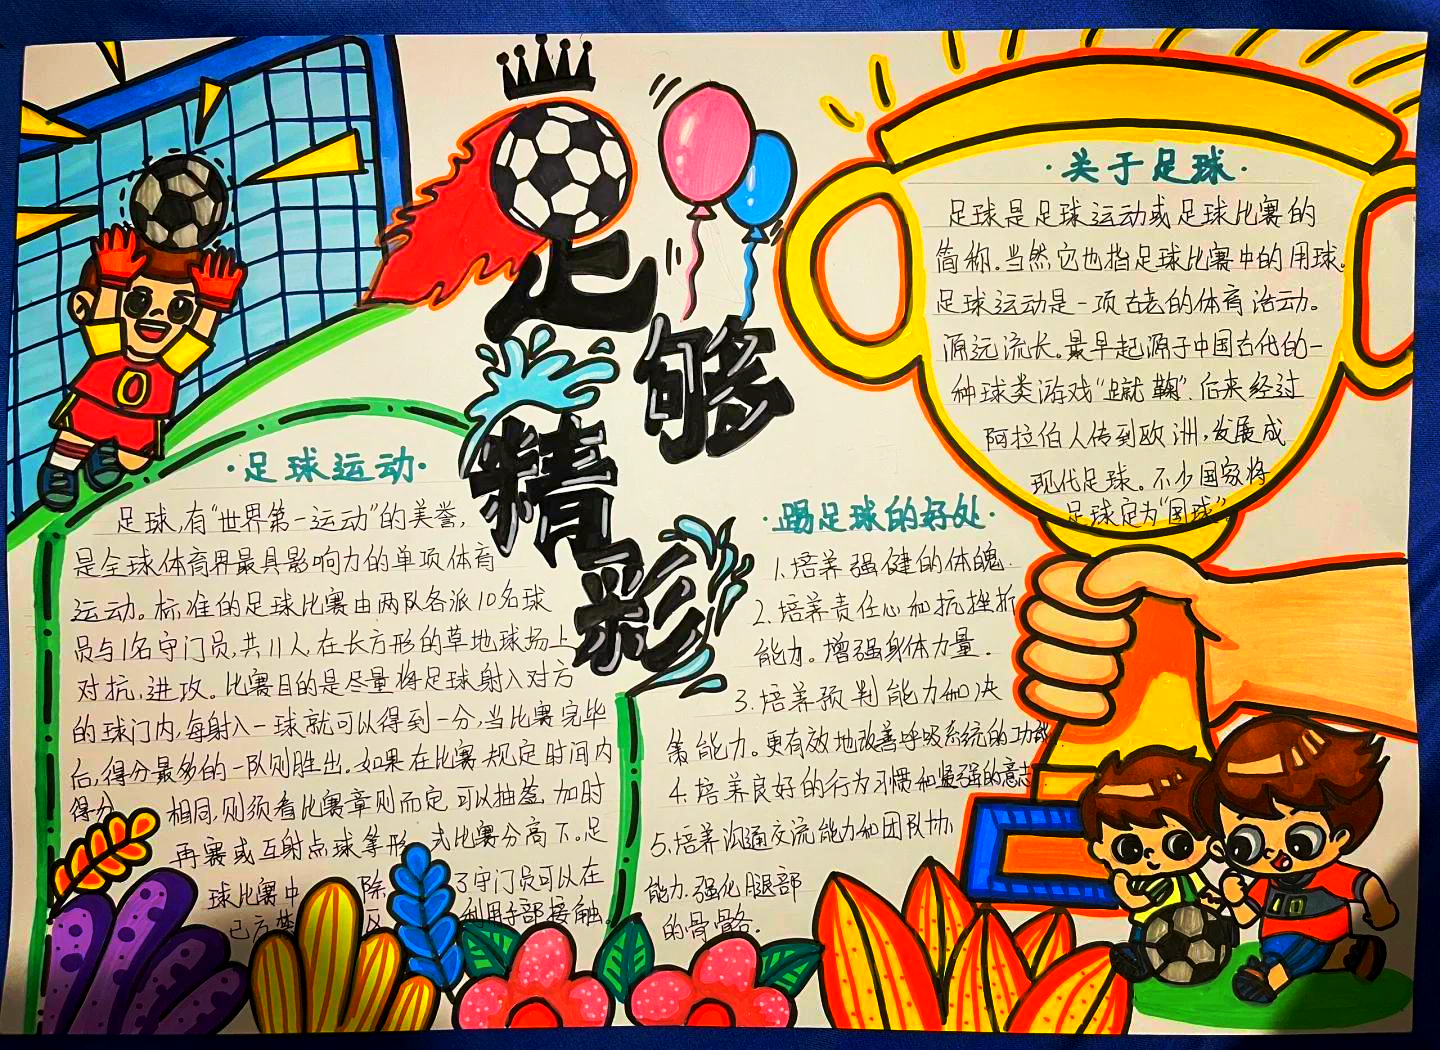 足够
精彩
·足球运动·
足球,有“世界第一运动”的美誉,
是全球体育界最具影响力的单项体育
运动。标准的足球比赛由两队各派10名球
员与1名守门员,共11人,在长方形的草地球场上
对抗、进攻。比赛目的是尽量将足球射入对方
的球门内,每射入一球就可以得到一分,当比赛完毕
后,得分最多的一队则胜出。如果在比赛规定时间内
得分 相同,则须看比赛章则而定可以抽签,加时
再赛或互射点球等形式比赛分高下。足
球比赛中 除 了守门员可以在
己方禁 区 利用手部接触。
·踢足球的好处·
1.培养强健的体魄.
2.培养责任心和抗挫折
能力。增强身体力量.
3.培养预判能力和决
策能力。更有效地改善呼吸系统的功能
4.培养良好的行为习惯和坚强的意志
5.培养沟通交流能力和团队协
能力.强化腿部
的骨骼.
·关于足球·
足球是足球运动或足球比赛的
简称。当然它也指足球比赛中的用球。
足球运动是一项古老的体育活动。
源远流长。最早起源于中国古代的一
种球类游戏“蹴鞠”,后来经过
阿拉伯人传到欧洲,发展成
现代足球。不少国家将
足球定为“国球”。
0